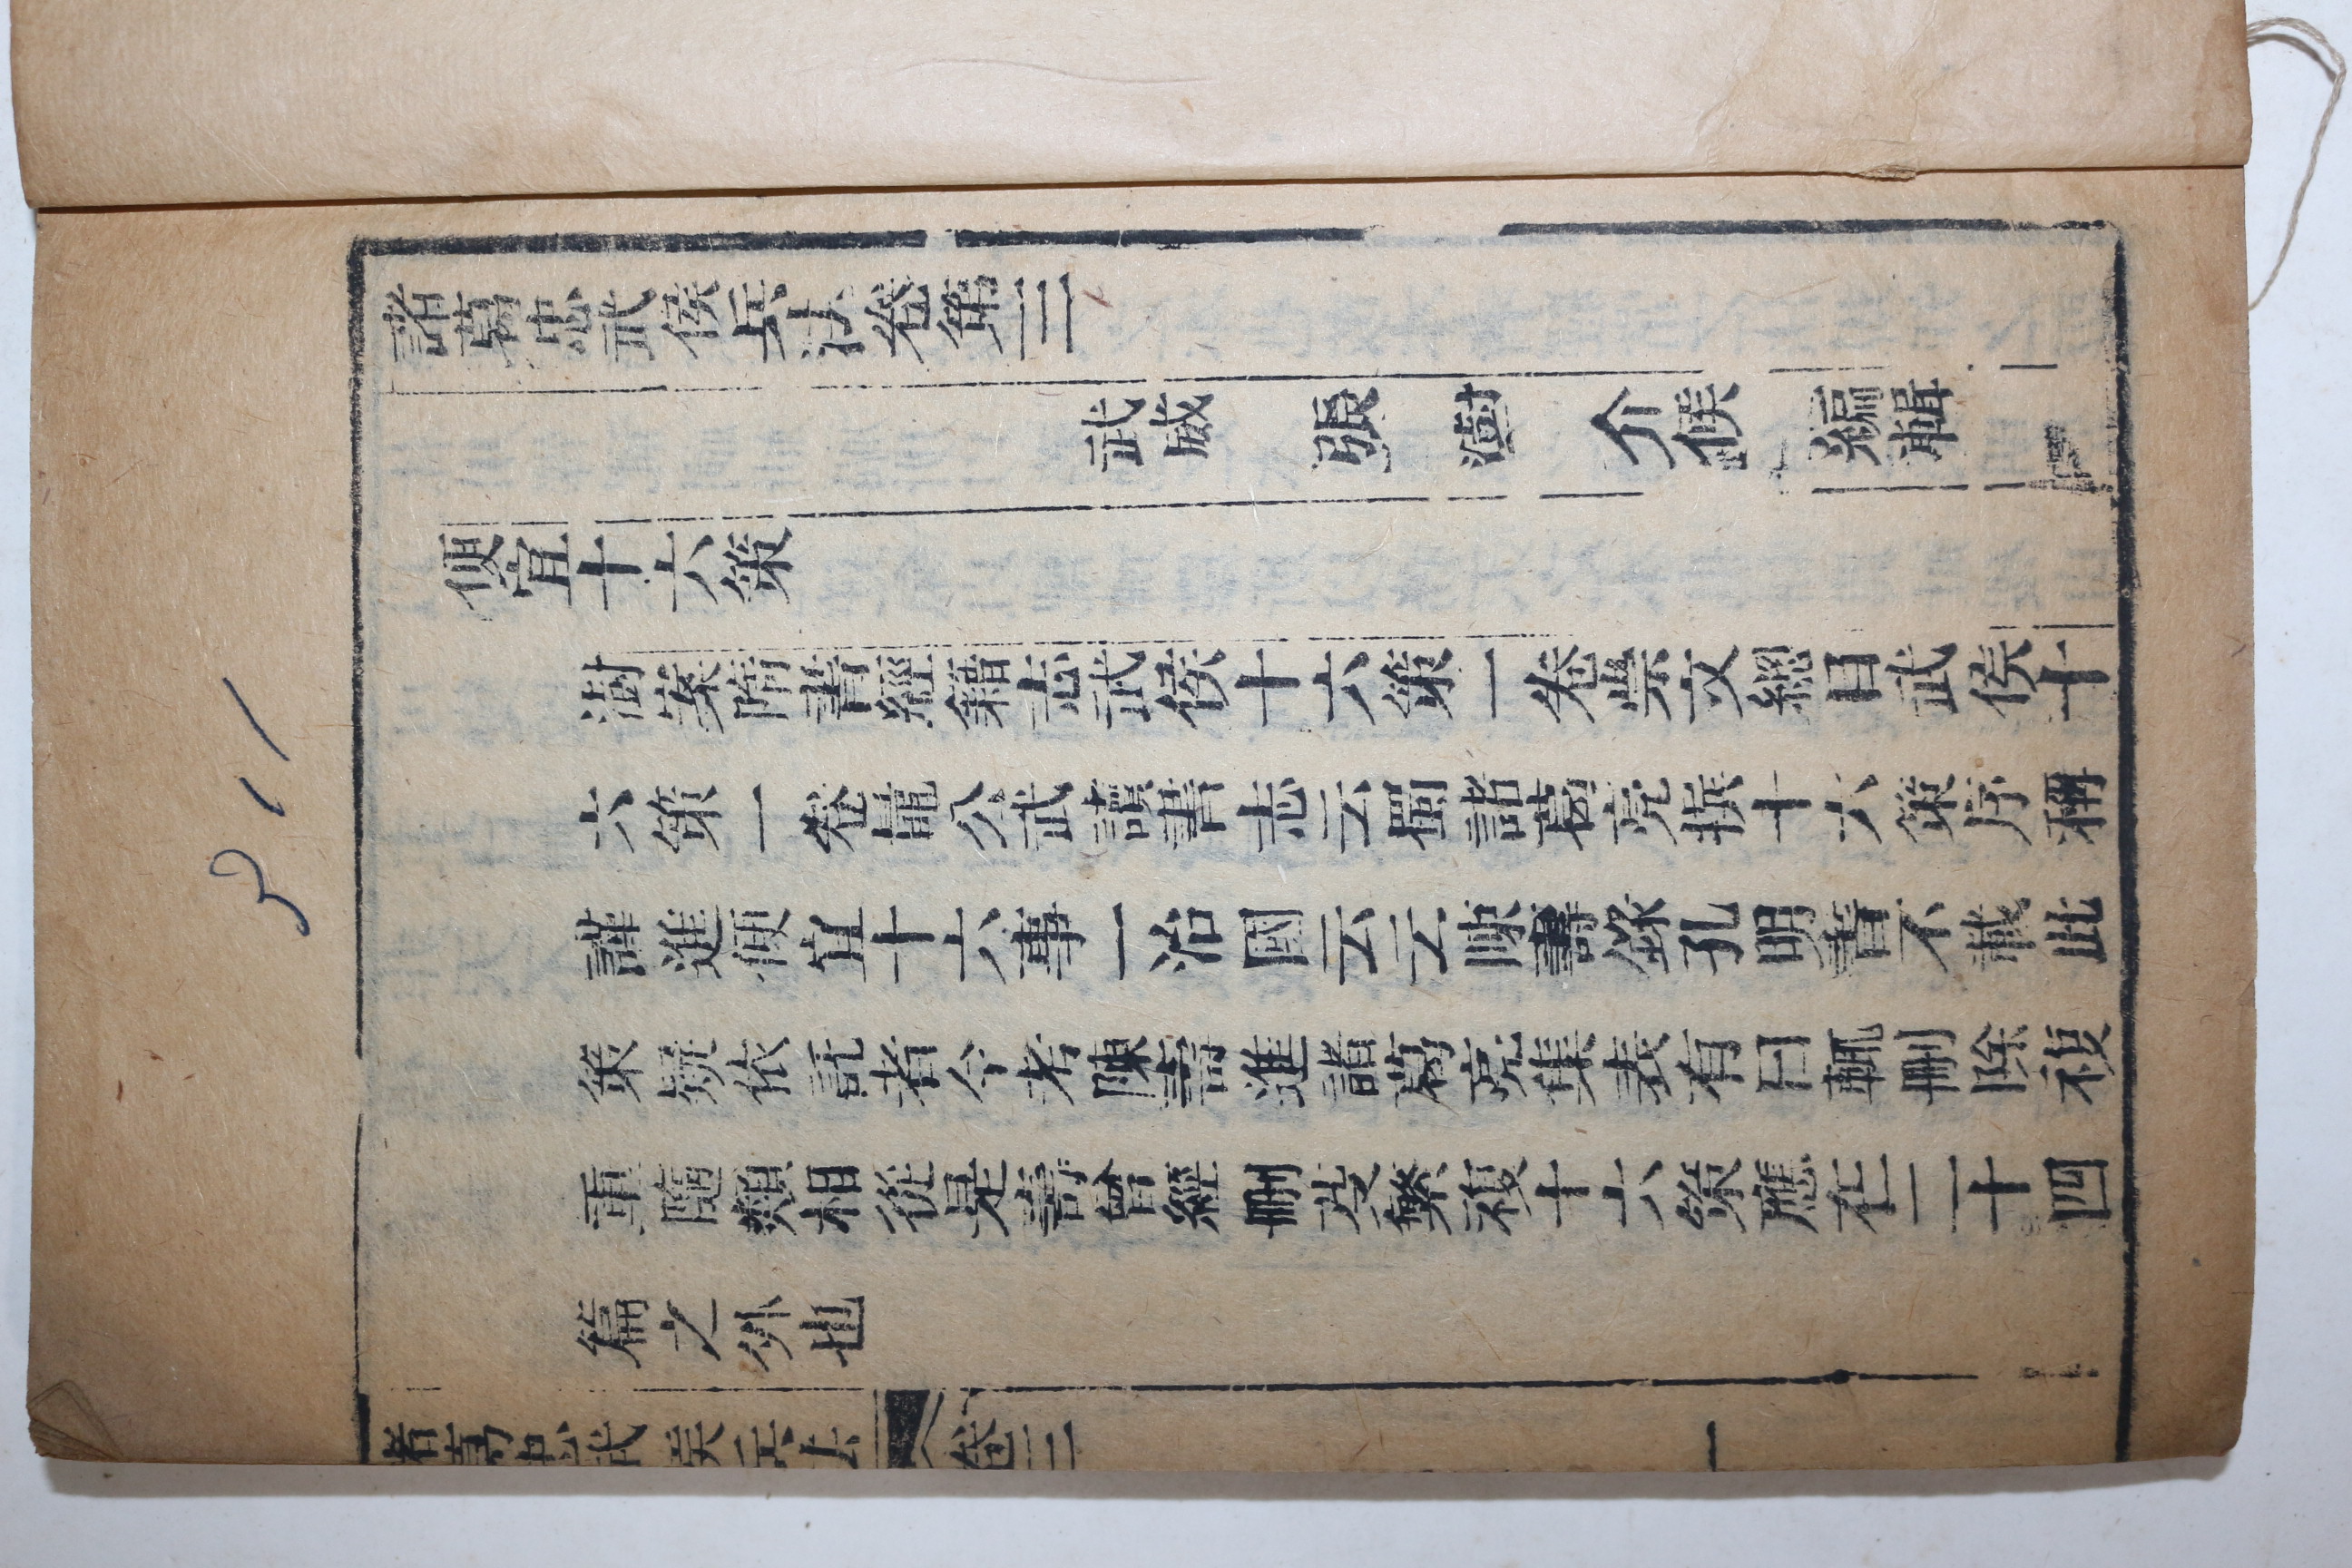 311
諸葛忠武侯兵法卷第三
武威 張澍 介侯 編輯
便宜十六策
澍案隋書經籍志武侯十六策一卷崇文總目武侯十
六策一卷鼂公武讀書志云蜀諸葛亮撰十六策序稱
謹進便宜十六事一治國云云陳壽錄孔明書不載此
策疑依託者今考陳壽進諸葛亮集表有曰輒刪除複
重隨類相從是壽曾經刪芟繁複十六策應在二十四
篇之外也
諸葛忠武侯兵法 卷三 一